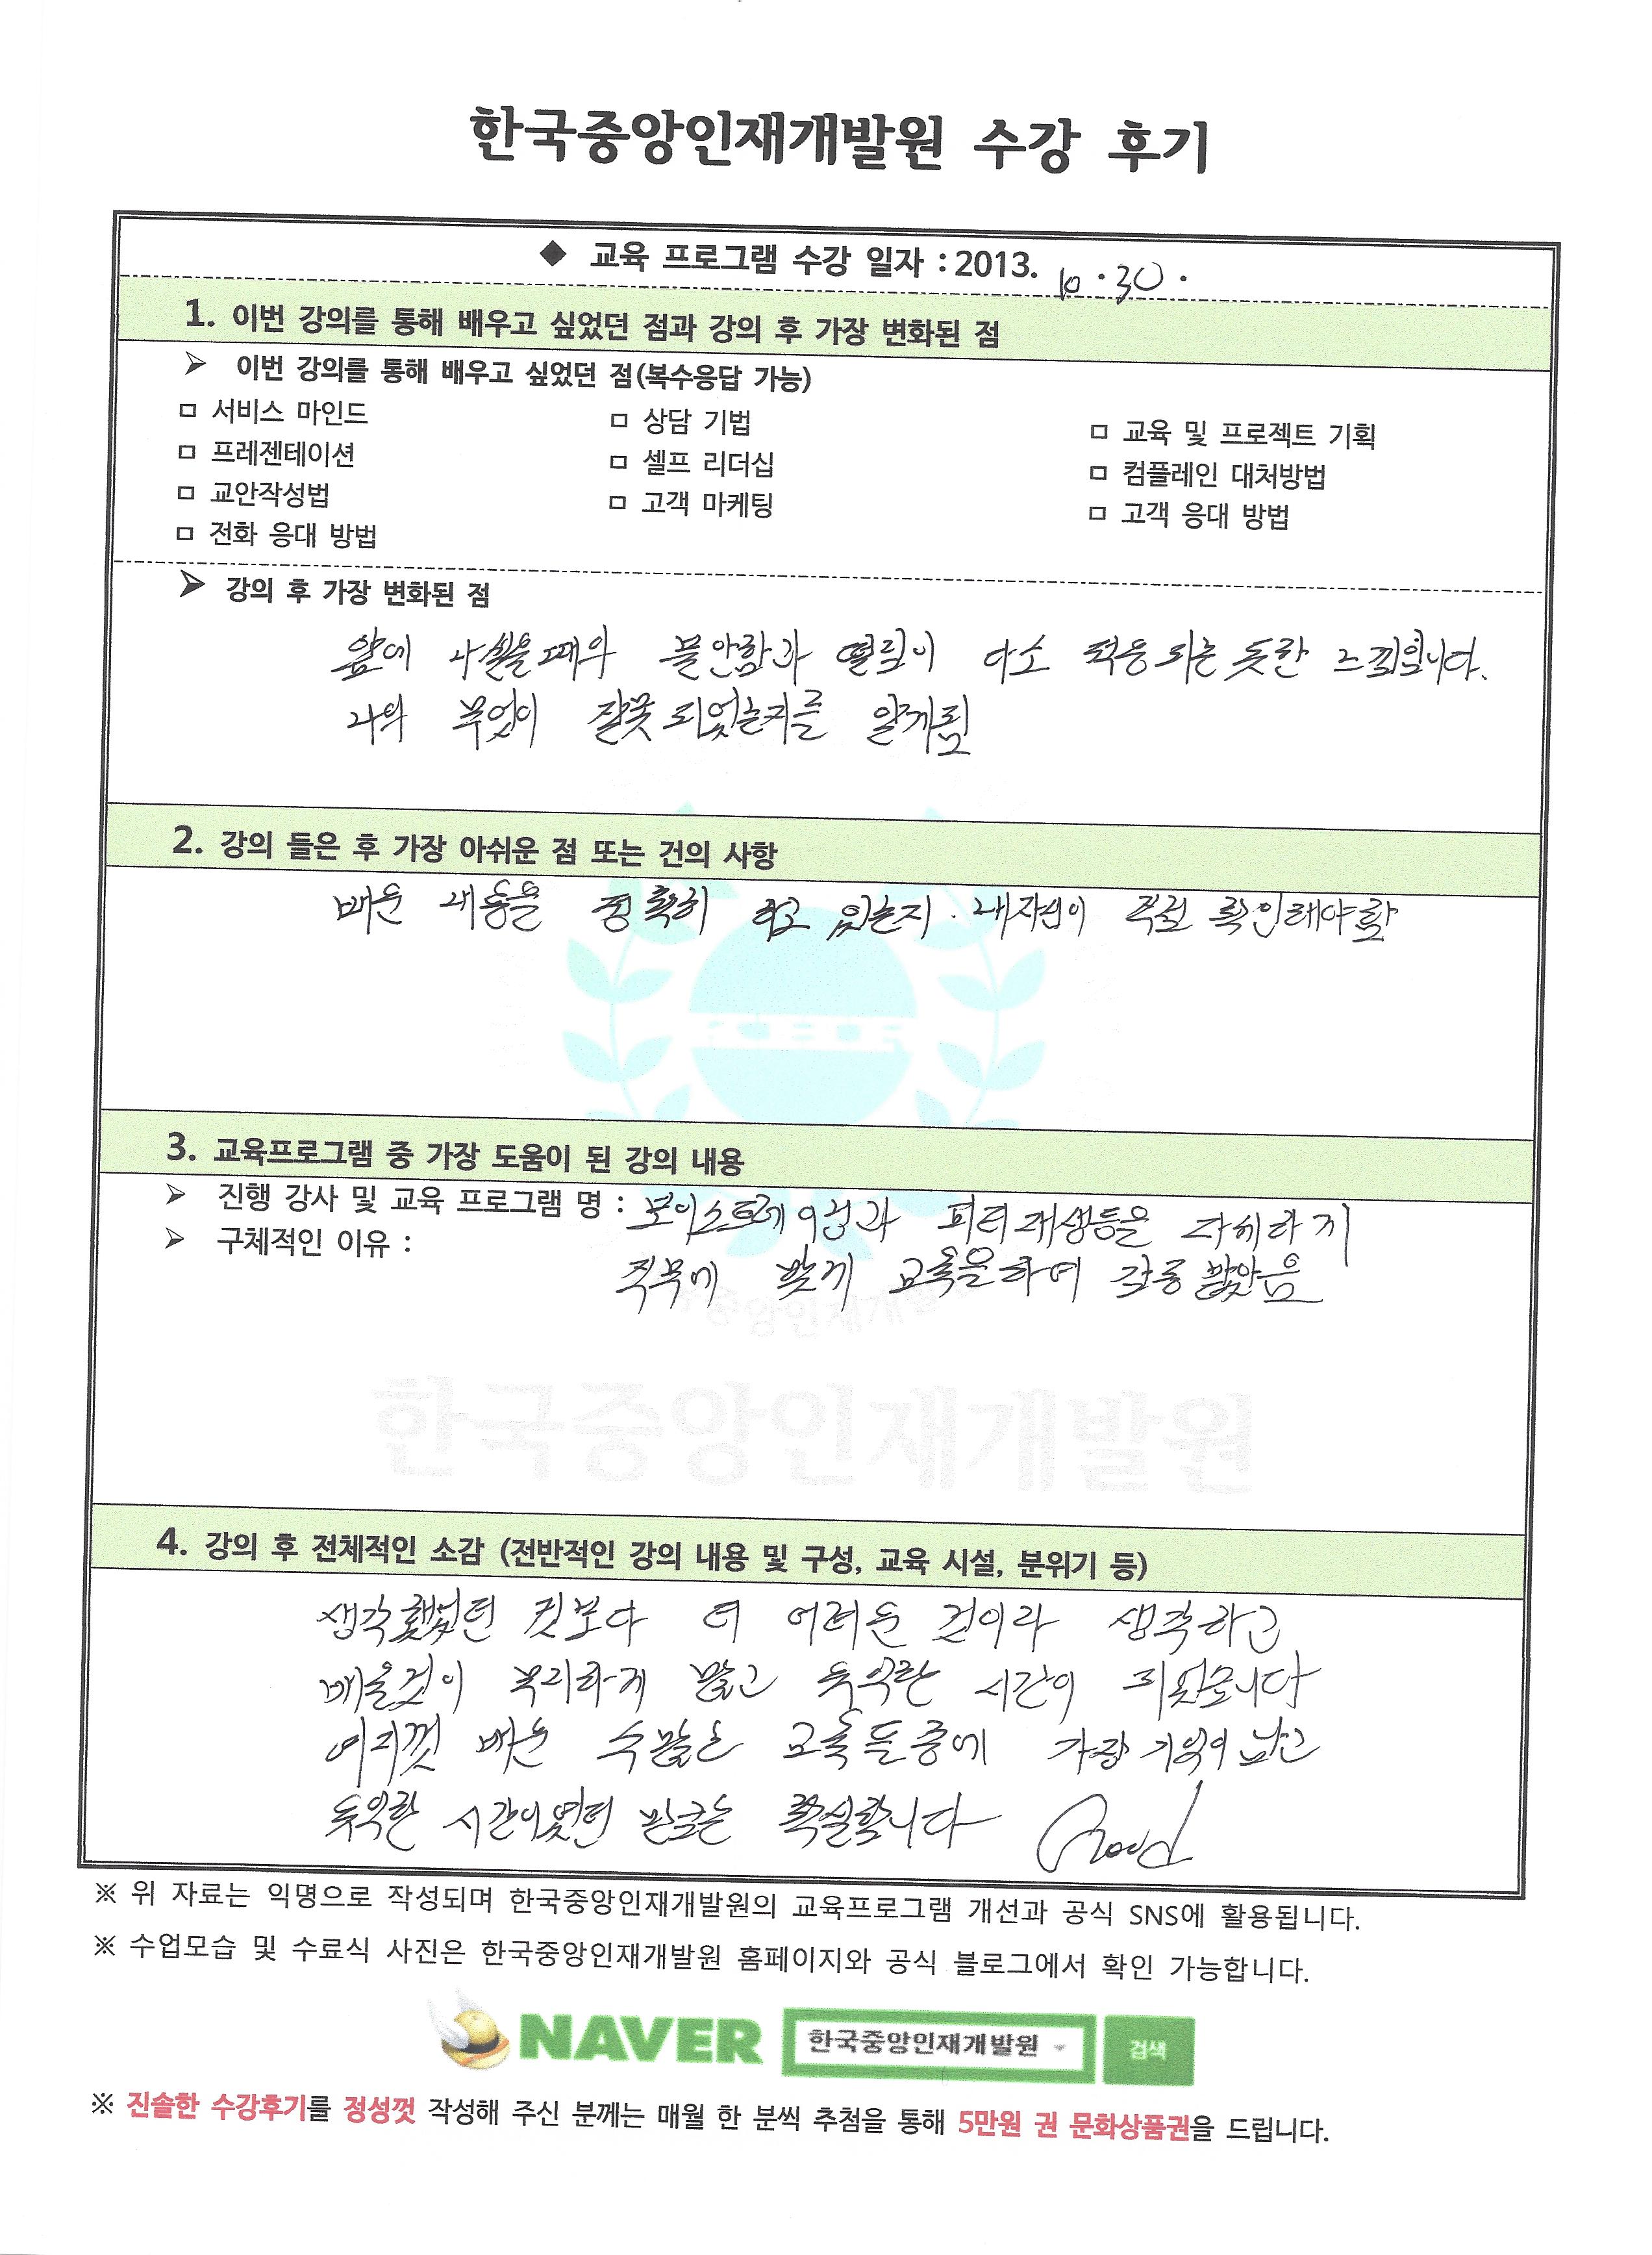 한국중앙인재개발원 수강 후기
◆ 교육 프로그램 수강 일자 : 2013. 10. 30.
1. 이번 강의를 통해 배우고 싶었던 점과 강의 후 가장 변화된 점
➢ 이번 강의를 통해 배우고 싶었던 점(복수응답 가능)
□ 서비스 마인드 □ 상담 기법 □ 교육 및 프로젝트 기획
□ 프레젠테이션 □ 셀프 리더십 □ 컴플레인 대처방법
□ 교안작성법 □ 고객 마케팅 □ 고객 응대 방법
□ 전화 응대 방법
➢ 강의 후 가장 변화된 점
앞에 나섰을때의 불안함과 떨림이 다소 적응되는 듯한 느낌입니다.
나의 무엇이 잘못되었는지를 알게됨
2. 강의 들은 후 가장 아쉬운 점 또는 건의 사항
배운 내용을 정확히 하고 있는지. 내자신이 직접 확인해야함
KCHR
3. 교육프로그램 중 가장 도움이 된 강의 내용
➢ 진행 강사 및 교육 프로그램 명 : 보이스트레이닝과 피티재생등을 자세하게
➢ 구체적인 이유 :
직무에 맞게 교육을하여 감동받았음
한국중앙인재개발원
한국중앙인재개발원
4. 강의 후 전체적인 소감 (전반적인 강의 내용 및 구성, 교육 시설, 분위기 등)
생각했었던 것보다 더 어려운 것이라 생각하고
배울것이 무리하게 많고 유익한 시간이 되었습니다
여지껏 배운 수많은 교육들중에 가장 기억이 남고
유익한 시간이었던 만큼은 확실합니다 Good
※ 위 자료는 익명으로 작성되며 한국중앙인재개발원의 교육프로그램 개선과 공식 SNS에 활용됩니다.
※ 수업모습 및 수료식 사진은 한국중앙인재개발원 홈페이지와 공식 블로그에서 확인 가능합니다.
NAVER 한국중앙인재개발원 검색
※ 진솔한 수강후기를 정성껏 작성해 주신 분께는 매월 한 분씩 추첨을 통해 5만원 권 문화상품권을 드립니다.